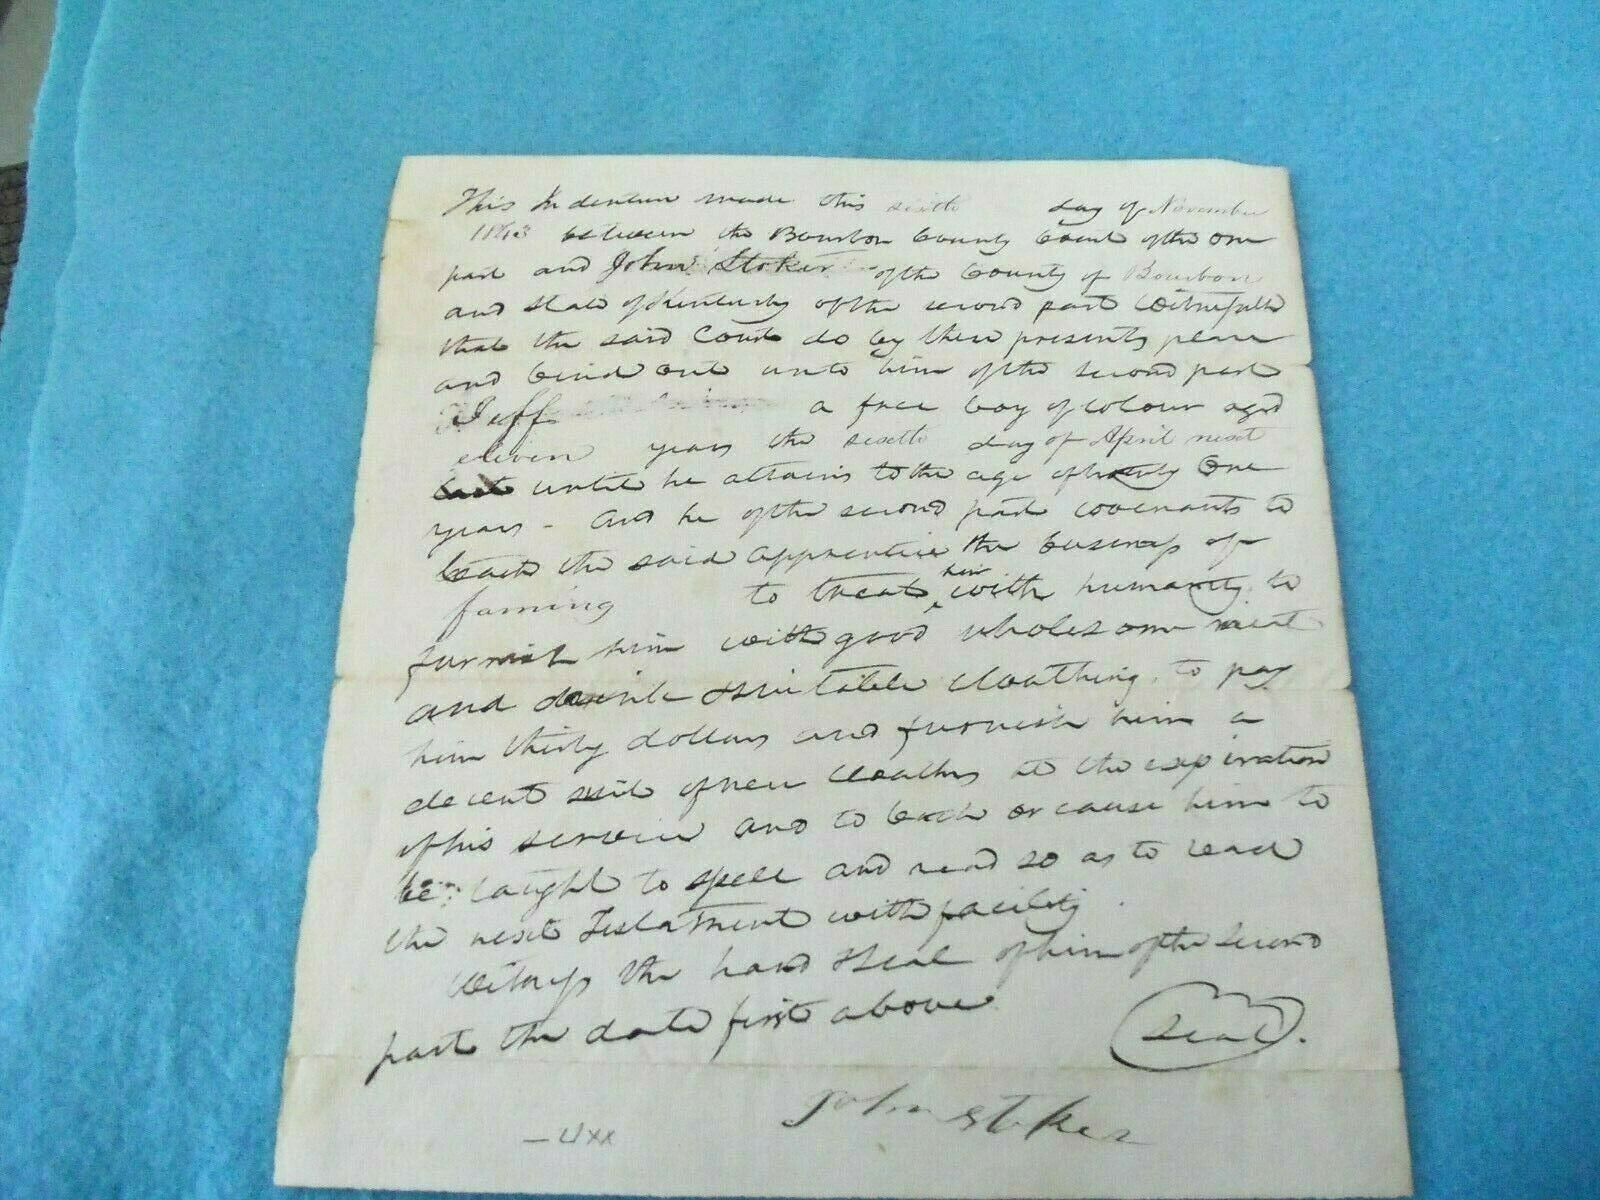 This Indenture made this sixth day of November
1843 between the Bourbon County Court of the one
part and John Stoker of the County of Bourbon
and State of Kentucky of the second part Witnesseth
that the said Court do by these presents place
and bind out unto him of the second part
Jeff a free boy of colour aged
eleven years the sixth day of April next
until he attains to the age of twenty One
years - And he of the second part covenants to
teach the said apprentice the business of
farming to treat him with humanity, to
furnish him with good wholesome meat
and drink & suitable cloathing, to pay
him thirty dollars and furnish him a
decent suit of new cloathes at the expiration
of his service and to teach or cause him to
be taught to spell and read so as to read
the next Testament with facility.
Witness the hand & seal of him of the second
part the date first above
Seal.
John Stoker